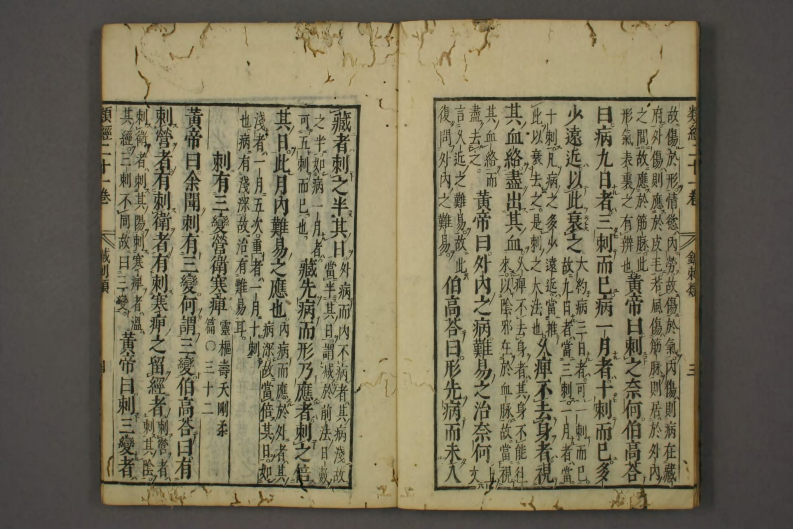 類經二十一卷 鍼刺類 三
故傷於形情慾內勞故傷於氣內傷則病在藏
府外傷則應於皮毛若風傷筋脈則居於外內
之間故應於筋脈此
形氣表裏之有辨也
黃帝曰刺之奈何伯高答
曰病九日者三刺而已病一月者十刺而已多
少遠近以此衰之
大約病三日者可一刺而已
故九日者當三刺一月者當
十刺凡病之多少遠近當推
此以衰去之是刺之大法也
久痺不去身者視
其血絡盡出其血
久痺不去身者其身不能往
來以陰邪在於血脈故當視
其血絡而
盡去之
黃帝曰外內之病難易之治奈何
文
言久近之難易故此
復問外內之難易
伯高答曰形先病而未入
藏者刺之半其日
外病而內不病者其病淺故
當半其日謂減於前法日數
之半如病一月者
可五刺而已也
藏先病而形乃應者刺之倍
其日此月內難易之應也
內病而應於外者其
病深故當倍其日如
淺者一月五次重者一月十刺
也病有淺深故治有難易耳
刺有三變營衛寒痺
靈樞壽夭剛柔
篇○三十二
黃帝曰余聞刺有三變何謂三變伯高答曰有
刺營者有刺衛者有刺寒痺之留經者
刺營者
刺其陰
刺衛者刺其陽刺寒痺者溫
其經三刺不同故曰三變
黃帝曰刺三變者
類經二十一卷 鍼刺類 四